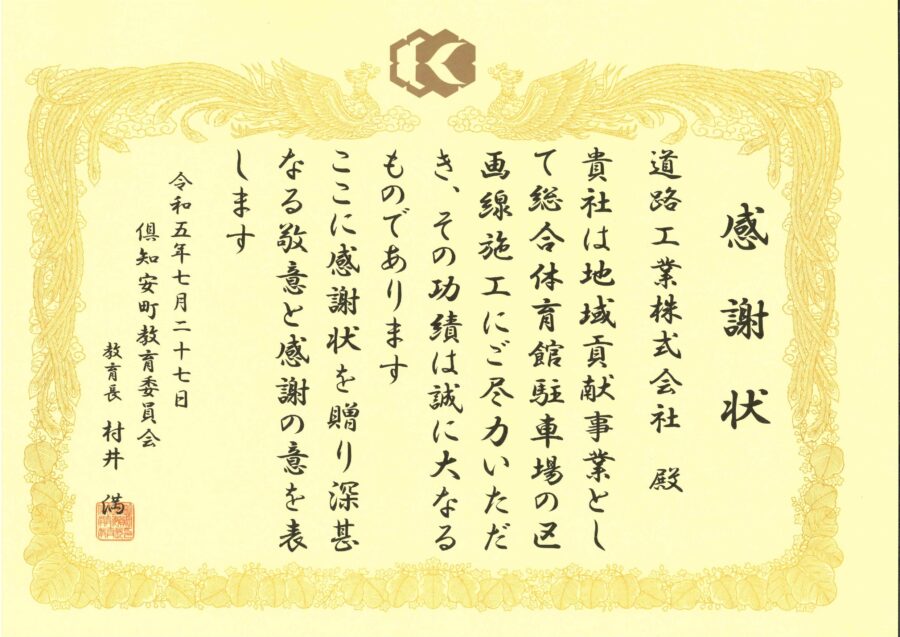 感謝状
道路工業株式会社 殿
貴社は地域貢献事業とし
て総合体育館駐車場の区
画線施工にご尽力いただ
き、その功績は誠に大なる
ものであります
ここに感謝状を贈り深甚
なる敬意と感謝の意を表
します
令和五年七月二十七日
倶知安町教育委員会
教育長 村井 満